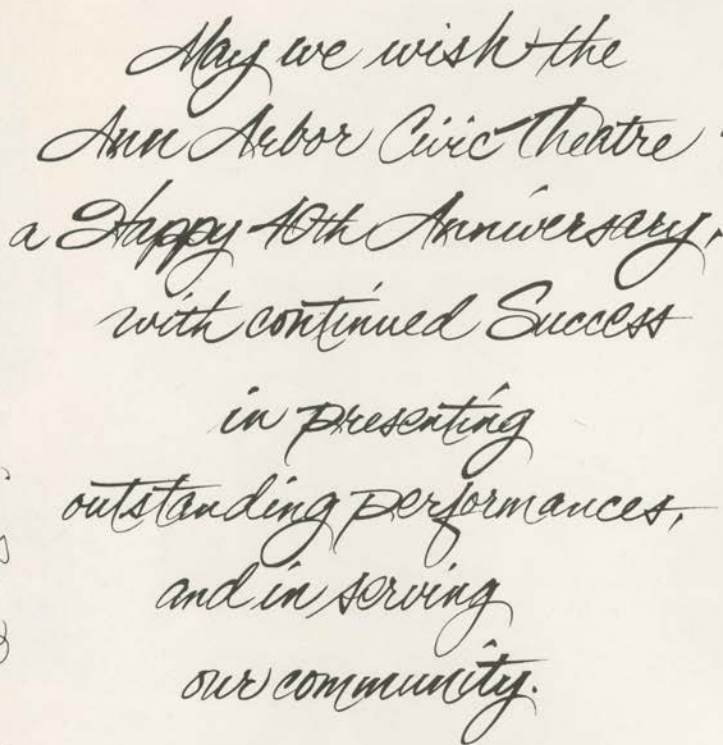 May we wish the
Ann Arbor Civic Theatre
a Happy 40th Anniversary,
with continued Success
in presenting
outstanding performances,
and in serving
our community.